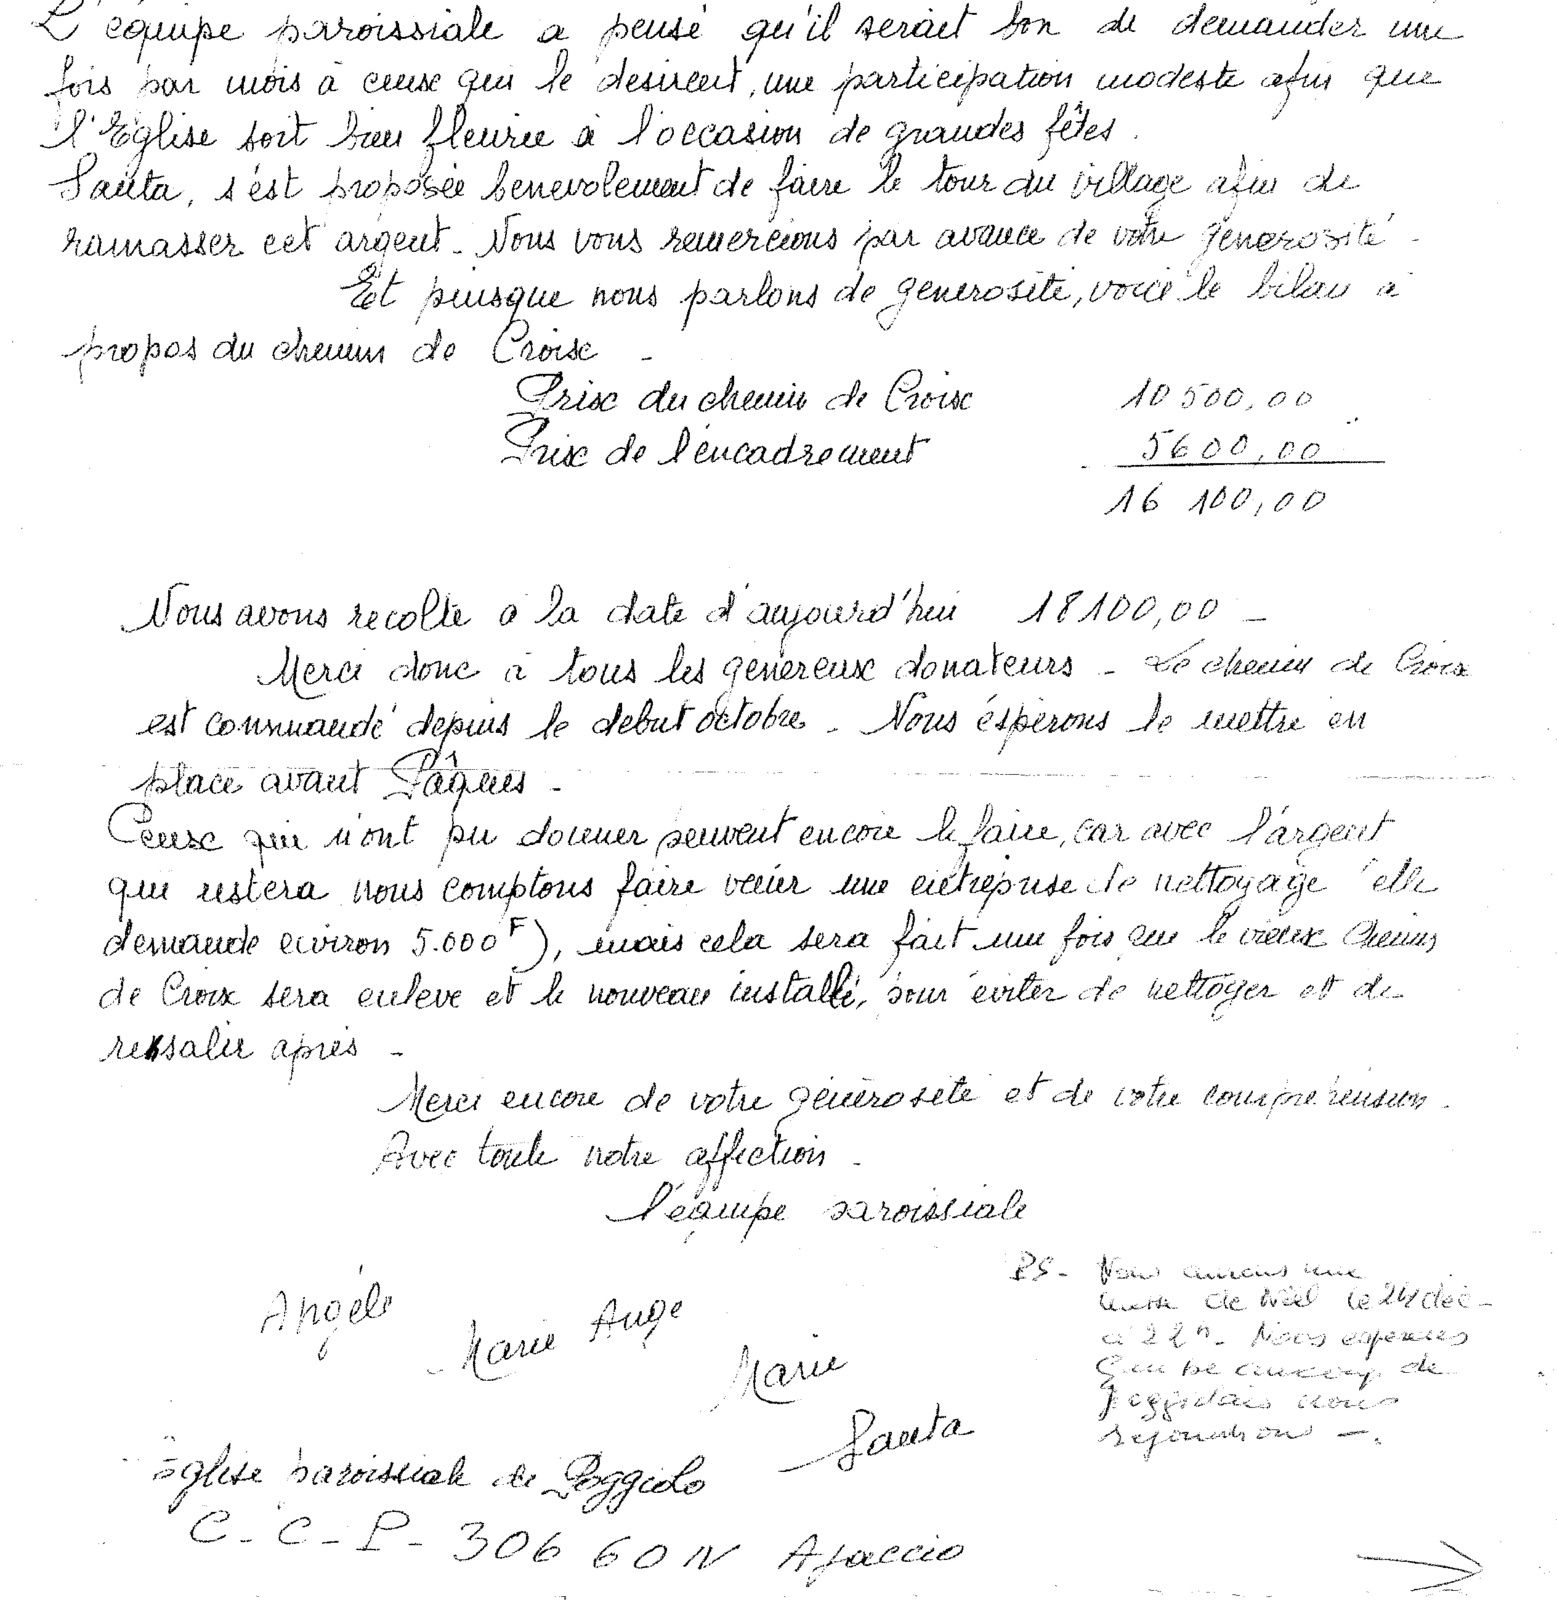 L'équipe paroissiale a pensé qu'il serait bon de demander une
fois par mois à ceux qui le desirent, une participation modeste afin que
l'Eglise soit bien fleurie à l'occasion de grandes fêtes.
Santa, s'est proposée benevolement de faire le tour du village afin de
ramasser cet argent. Nous vous remercions par avance de votre générosité.
Et puisque nous parlons de generosité, voici le bilan à
propos du chemin de Croix -
Prix du chemin de Croix 10 500,00
Prix de l'encadrement 5600,00
16 100,00
Nous avons recolté à la date d'aujourd'hui 18100,00 -
Merci donc à tous les genereux donateurs - Le chemin de Croix
est commandé depuis le debut octobre. Nous éspérons le mettre en
place avant Pâques -
Ceux qui n'ont pu donner peuvent encore le faire, car avec l'argent
qui restera nous comptons faire venir une entreprise de nettoyage (elle
demande environ 5.000F), mais cela sera fait une fois que le vieux chemin
de Croix sera enleve et le nouveau installé, pour éviter de nettoyer et de
resalir après -
Merci encore de votre générosité et de votre compréhension.
Avec toute notre affection -
l'équipe paroissiale
PS - Nous aurons une
messe de Noël le 24 déc -
à 22h - Nous esperons
que beaucoup de
Poggiolais nous
rejoindrons -.
Angèle
Marie Ange
Marie
Santa
Eglise paroissiale de Poggiolo
C - C - P - 306 60 N Ajaccio